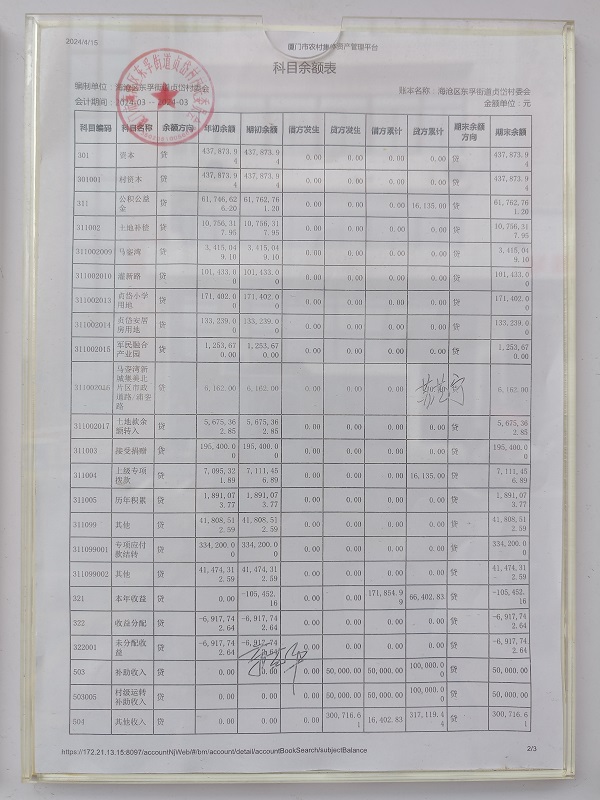 2024/4/15 厦门市农村集体资产管理平台
科目余额表
编制单位：海沧区东孚街道贞岱村委会 账本名称：海沧区东孚街道贞岱村委会
会计期间：2024-03 -- 2024-03 金额单位：元
科目编码 科目名称 余额方向 年初余额 期初余额 借方发生 贷方发生 借方累计 贷方累计 期末余额方向 期末余额
301 资本 贷 437,873.94 437,873.94 0.00 0.00 0.00 0.00 贷 437,873.94
301001 村资本 贷 437,873.94 437,873.94 0.00 0.00 0.00 0.00 贷 437,873.94
311 公积公益金 贷 61,746,626.20 61,762,761.20 0.00 0.00 0.00 16,135.00 贷 61,762,761.20
311002 土地补偿 贷 10,756,317.95 10,756,317.95 0.00 0.00 0.00 0.00 贷 10,756,317.95
311002009 马銮湾 贷 3,415,049.10 3,415,049.10 0.00 0.00 0.00 0.00 贷 3,415,049.10
311002010 灌新路 贷 101,433.00 101,433.00 0.00 0.00 0.00 0.00 贷 101,433.00
311002013 贞岱小学用地 贷 171,402.00 171,402.00 0.00 0.00 0.00 0.00 贷 171,402.00
311002014 贞岱安居房用地 贷 133,239.00 133,239.00 0.00 0.00 0.00 0.00 贷 133,239.00
311002015 军民融合产业园 贷 1,253,670.00 1,253,670.00 0.00 0.00 0.00 0.00 贷 1,253,670.00
马銮湾新城集美北片区市政道路 贷 6,162.00 6,162.00 0.00 0.00 0.00 贷 6,162.00
311002017 土地款余额转入 贷 5,675,362.85 5,675,362.85 0.00 0.00 0.00 0.00 贷 5,675,362.85
311003 接受捐赠 贷 195,400.00 195,400.00 0.00 0.00 0.00 0.00 贷 195,400.00
311004 上级专项拨款 贷 7,095,321.89 7,111,456.89 0.00 0.00 0.00 16,135.00 贷 7,111,456.89
311005 历年积累 贷 1,891,073.77 1,891,073.77 0.00 0.00 0.00 0.00 贷 1,891,073.77
311099 其他 贷 41,808,512.59 41,808,512.59 0.00 0.00 0.00 0.00 贷 41,808,512.59
311099001 专项应付款结转 贷 334,200.00 334,200.00 0.00 0.00 0.00 0.00 贷 334,200.00
311099002 其他 贷 41,474,312.59 41,474,312.59 0.00 0.00 0.00 0.00 贷 41,474,312.59
321 本年收益 贷 0.00 -105,452.16 0.00 0.00 171,854.99 66,402.83 贷 -105,452.16
322 收益分配 贷 -6,917,742.64 -6,917,742.64 0.00 0.00 0.00 0.00 贷 -6,917,742.64
322001 未分配收益 贷 -6,917,742.64 -6,917,742.64 0.00 0.00 0.00 0.00 贷 -6,917,742.64
503 补助收入 贷 0.00 0.00 0.00 50,000.00 50,000.00 100,000.00 贷 50,000.00
503005 村级运转补助收入 贷 0.00 0.00 0.00 50,000.00 50,000.00 100,000.00 贷 50,000.00
504 其他收入 贷 0.00 0.00 0.00 300,716.61 16,402.83 317,119.44 贷 300,716.61
https://172.21.13.15:8097/accountNjWeb/#/bm/account/detail/accountBookSearch/subjectBalance 2/3